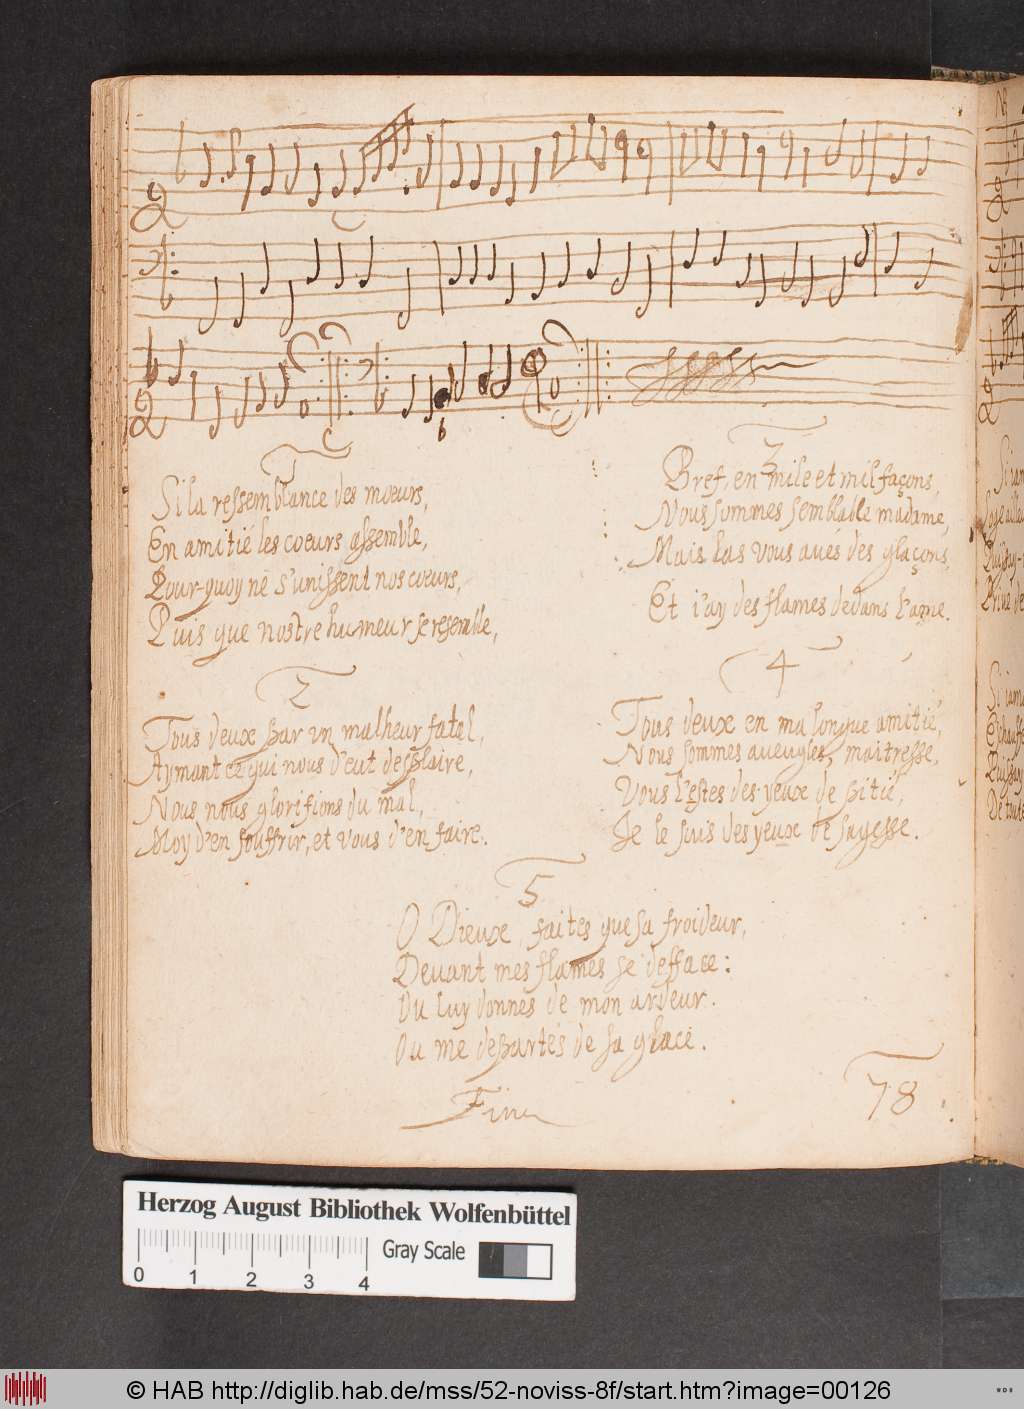 b
1
Si la ressemblance des mœurs,
En amitié les cœurs assemble,
Pour-quoy ne s'unissent nos cœurs,
Puis que nostre humeur se resemble,
2
Tous deux par un malheur fatal,
Aymant ce qui nous d'eut desplaire,
Nous nous glorifions du mal,
Moy d'en souffrir, et vous d'en faire.
3
Bref, en mile et mil façons,
Nous sommes semblable madame,
Mais las vous avés des glaçons,
Et i'ay des flames dedans l'ame.
4
Tous deux en ma longue amitié,
Nous sommes aveugles, maitresse,
Vous l'estes des yeux de pitié,
Je le suis des yeux de sagesse.
5
O Dieux, faites que sa froideur,
Devant mes flames se defface:
Ou luy donnés de mon ardeur.
Ou me departés de sa glace.
Finis
78
Si iam
Puissy-
Privé de
Si iama
Eschauffe
Puissay
De toute
Herzog August Bibliothek Wolfenbüttel
0 1 2 3 4
Gray Scale
© HAB http://diglib.hab.de/mss/52-noviss-8f/start.htm?image=00126